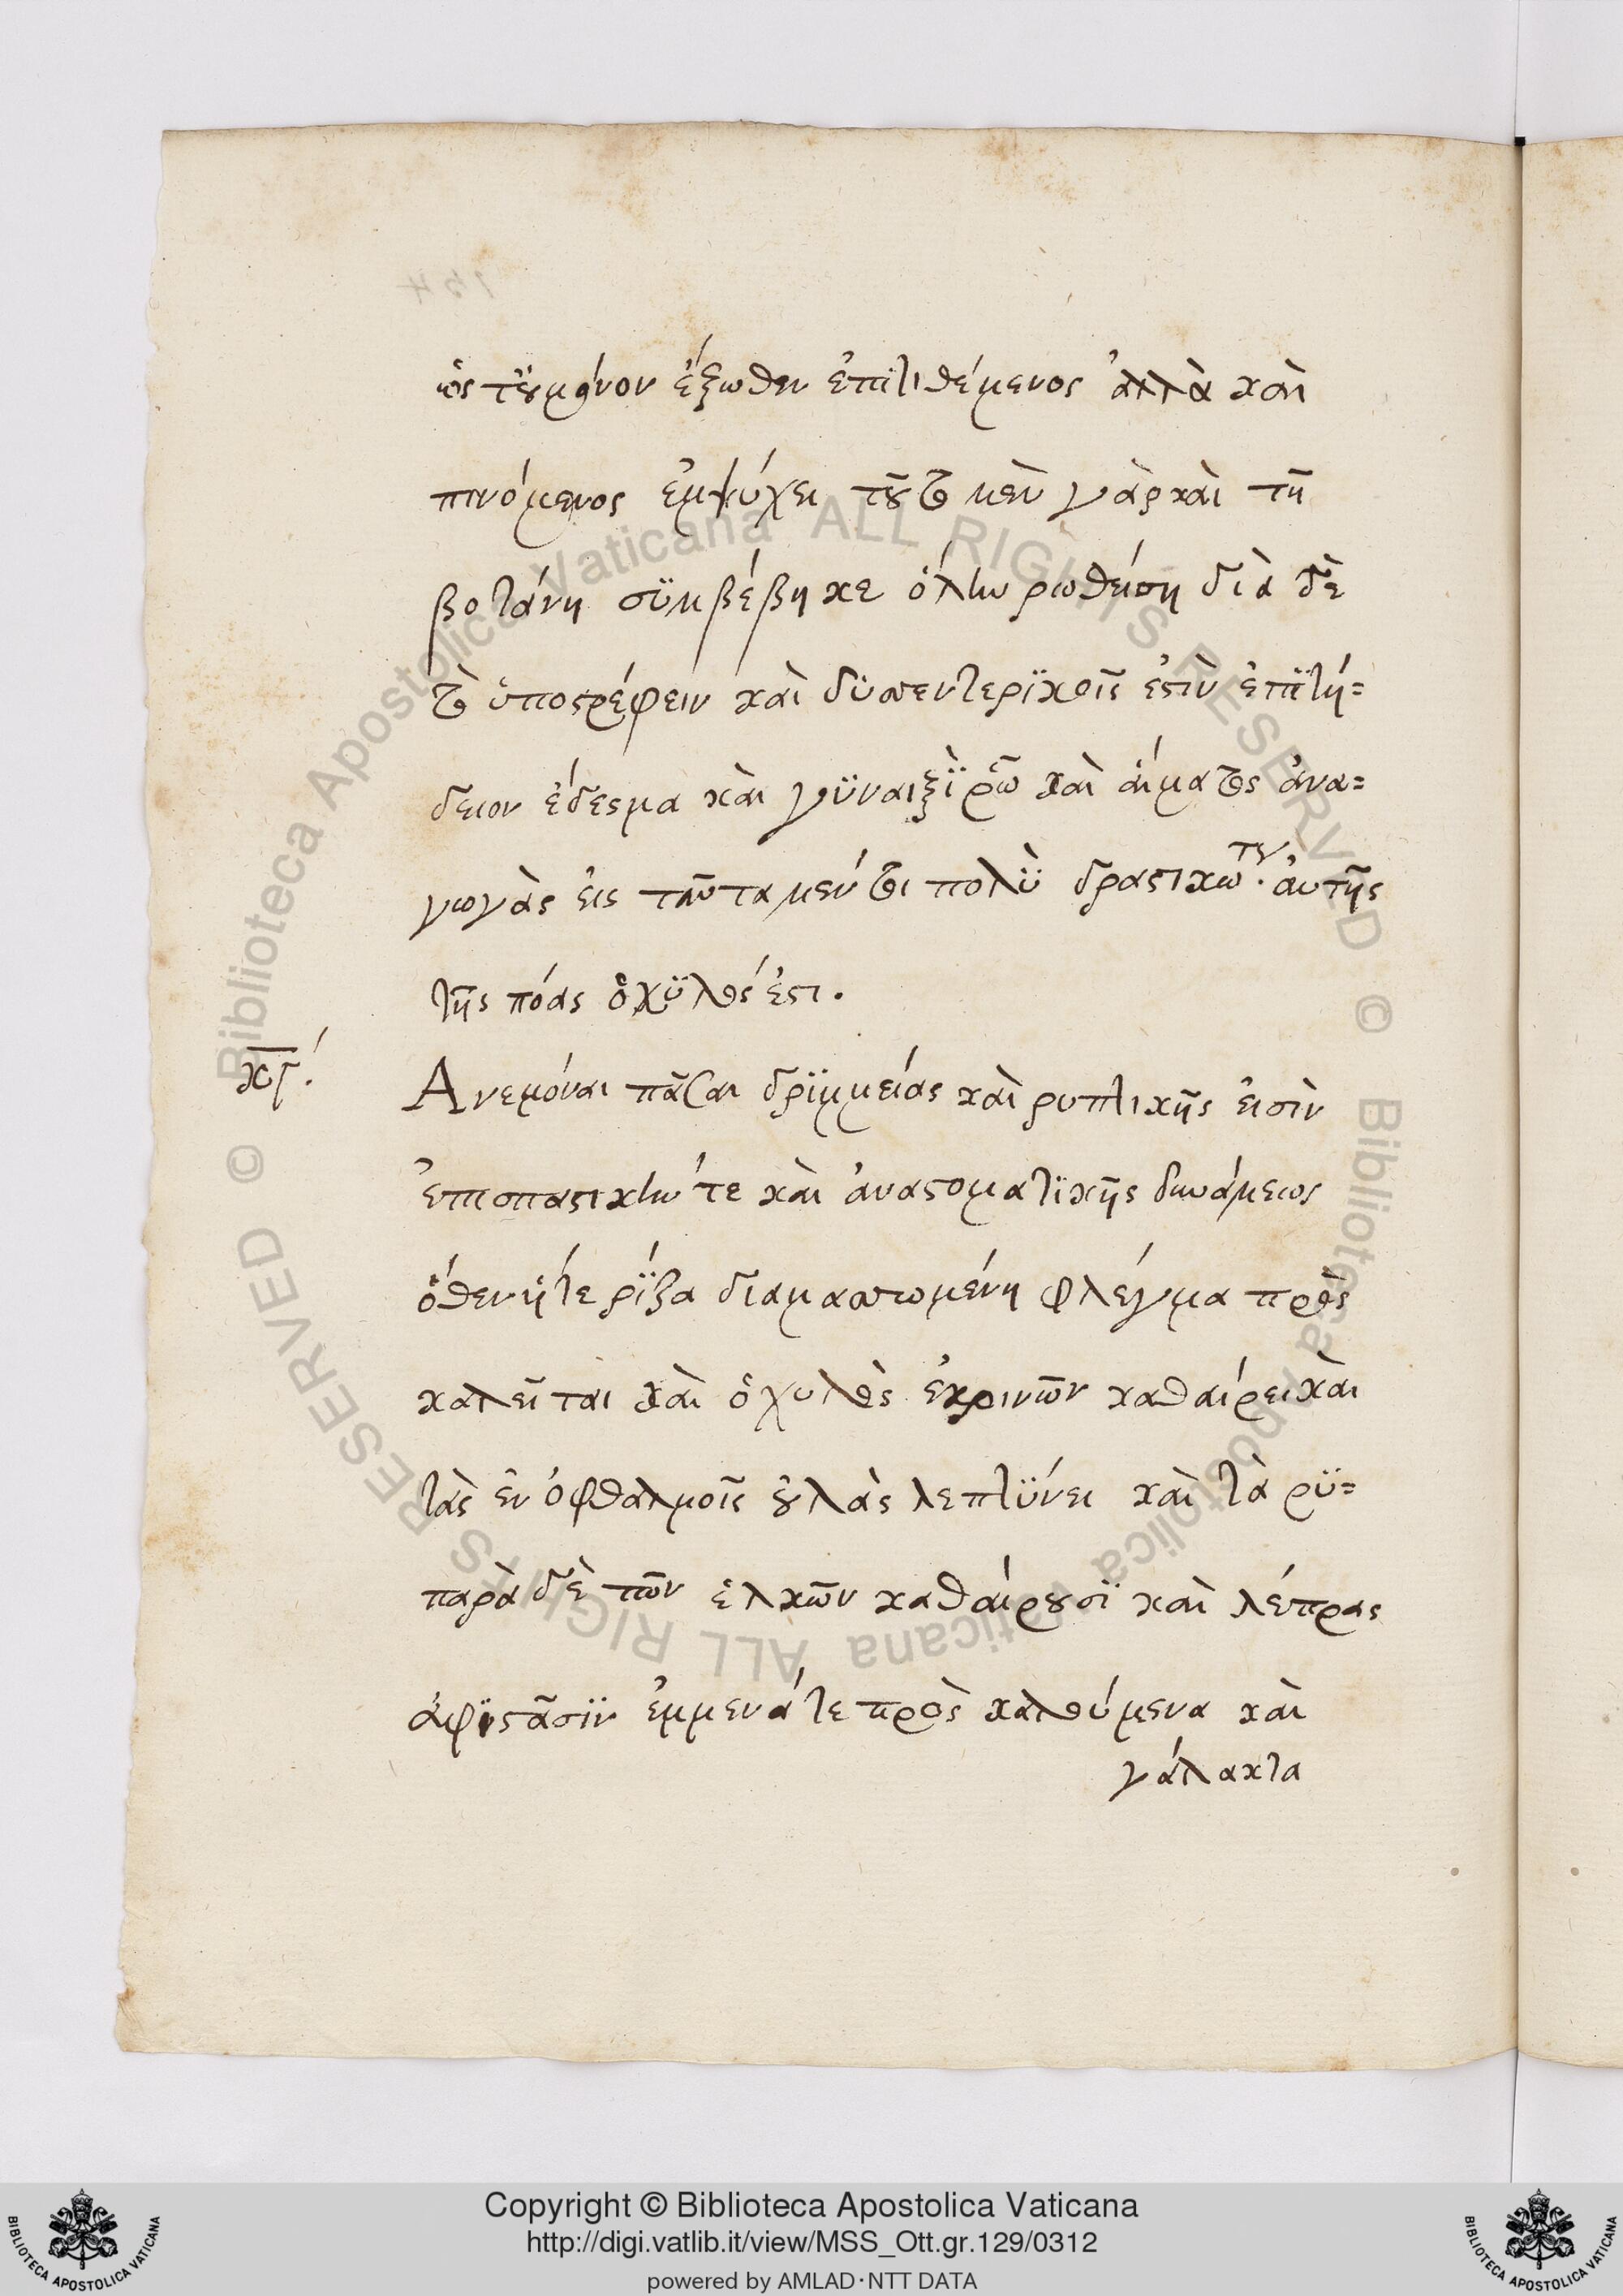 ὡς τοῦ μόνον ἔξωθεν ἐπιτιθέμενος ἀλλὰ καὶ
πινόμενος ἐμψύχει τοῦτο μὲν γὰρ καὶ τῇ
βοτάνῃ συμβέβηκε ὅλην βρωθείσῃ διὰ δὲ
τὸ ὑποστρέφειν καὶ δυσεντερϊκοῖς ἐστὶν ἐπϊτή=
δειον ἔδεσμα καὶ γϋναιξῒ ῥῶ καὶ αἵματος ἀνα=
γωγὰς εἰς ταῦτα μέντοι πολῢ δραστικώτ. αὐτῆς
τῆς πόας ὁ χϋλός ἐστι.
κγ.
Ανεμόναι πᾶσαι δρϊμμείας καὶ ρυπτικῆς εἰσὶν
ἐπισπαστικήν τε καὶ ἀναστοματϊκῆς δυνάμεως
ὅθεν ἥτε ρίζα διαμασσωμένη φλέγμα πρὸς
καλεῖται καὶ ὁ χυλὸς ἐκρινῶν καθαίρει καὶ
τὰς ἐν ὀφθαλμοῖς οὐλὰς λεπτϋνει καὶ τὰ ρϋ=
παρὰ δὲ τῶν ἑλκῶν καθαίρουσϊ καὶ λέπρας
ἀφϊστᾶσϊν ἐμμενά τε πρὸς καλούμενα καὶ
γάλακτα
Copyright © Biblioteca Apostolica Vaticana
http://digi.vatlib.it/view/MSS_Ott.gr.129/0312
powered by AMLAD·NTT DATA